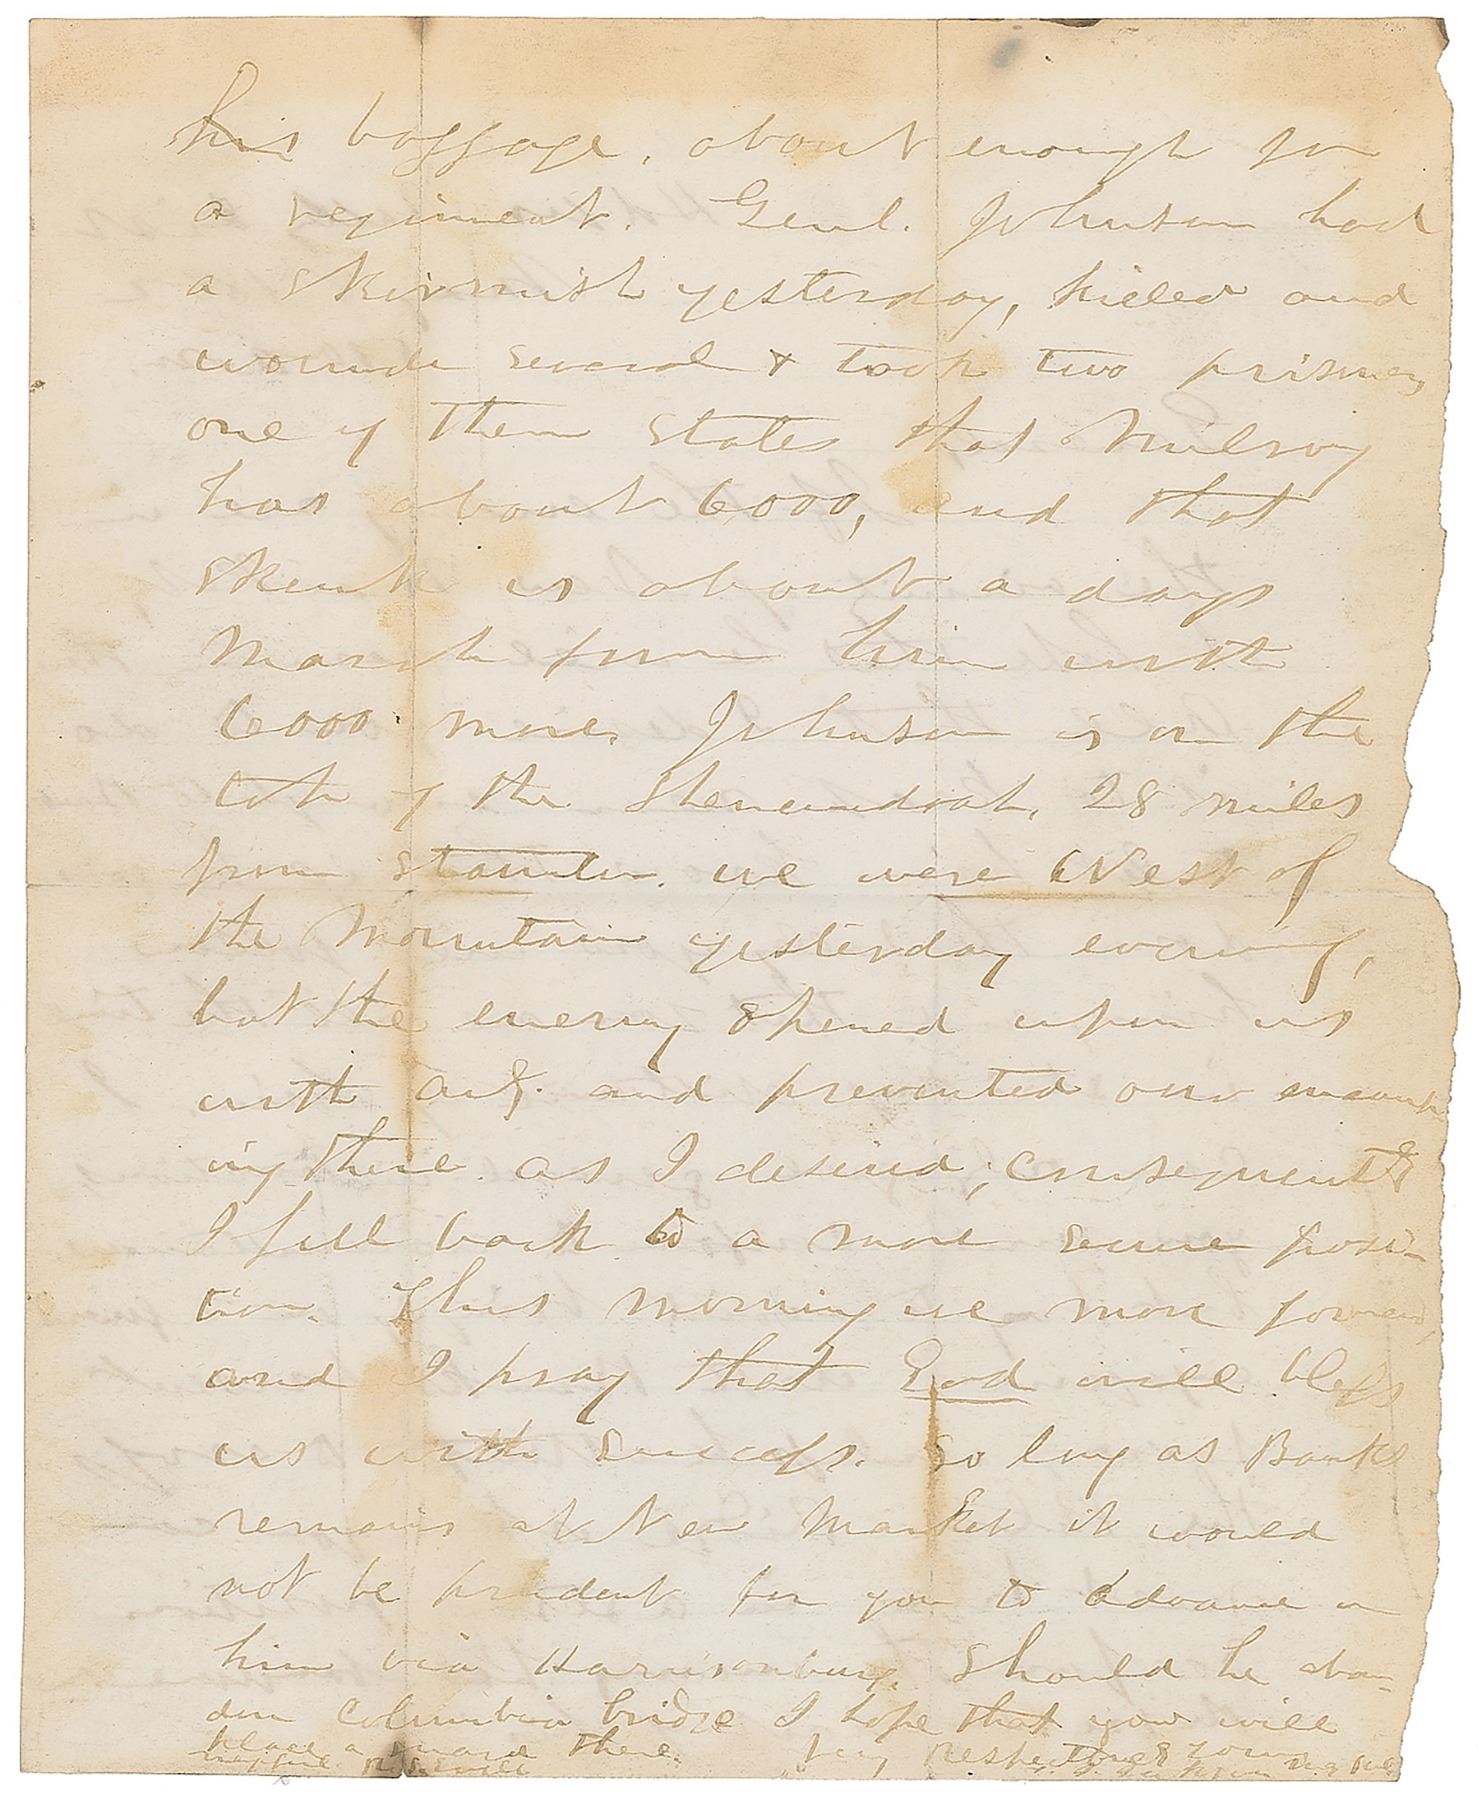 his baggage, about enough for
a regiment. Genl. Johnson had
a skirmish yesterday, killed and
wounde several & took two prisoners
one of them states that Milroy
has about 6000, and that
Skenk is about a days
march from him with
6000 more, Johnson is on the
top of the Shenandoah, 28 miles
from Staunton. we were West of
the Mountain yesterday evening,
but the enemy opened upon us
with art. and prevented our encamp
ing there as I desired; consequently
I fell back to a more secure posi-
tion. This morning we move forward,
and I pray that God will bless
us with success. So long as Banks
remains at New Market it would
not be prudent for you to advance on
him via Harrisonburg. Should he aban-
don Columbia bridge I hope that you will
place a guard there. Very Respectfully yours